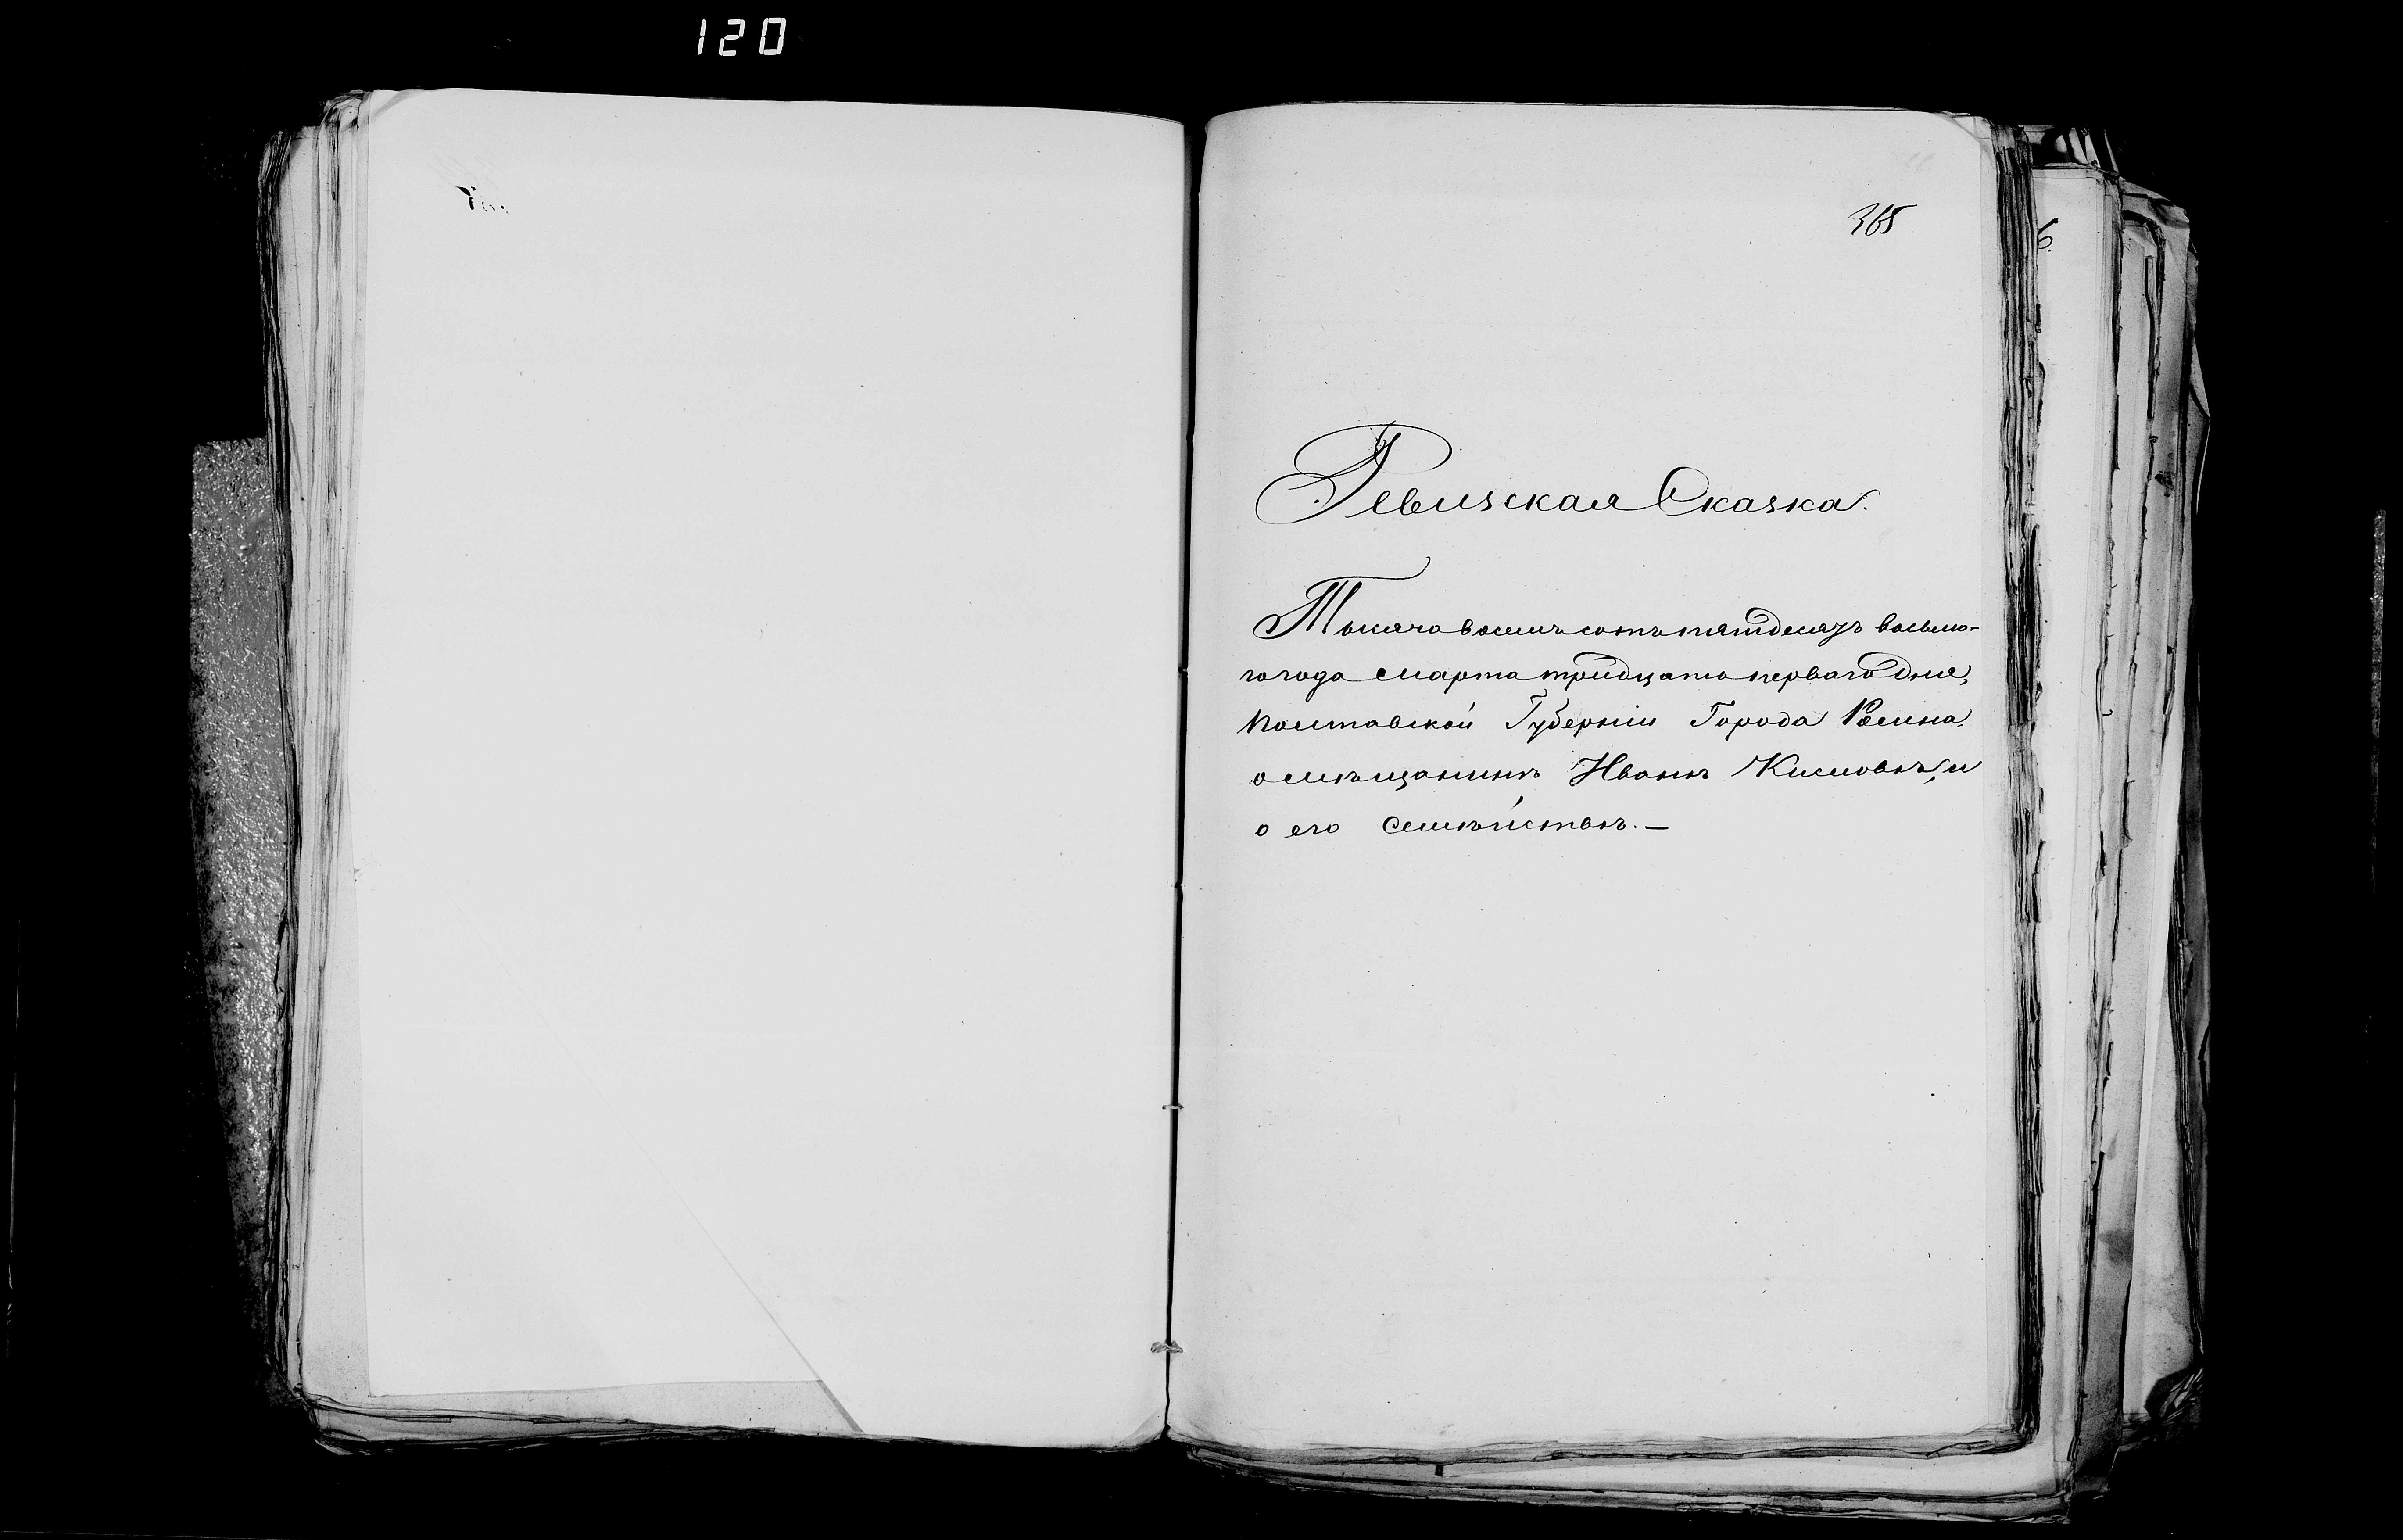 120
365
Ревизская Сказка.
Тысяча восемь сотъ пятдесятъ восьмо-
го года марта тридцать перваго дня,
Полтавской Губерніи Города Ромна.
о мѣщанинѣ Иванѣ и
о его Семѣйствѣ.—